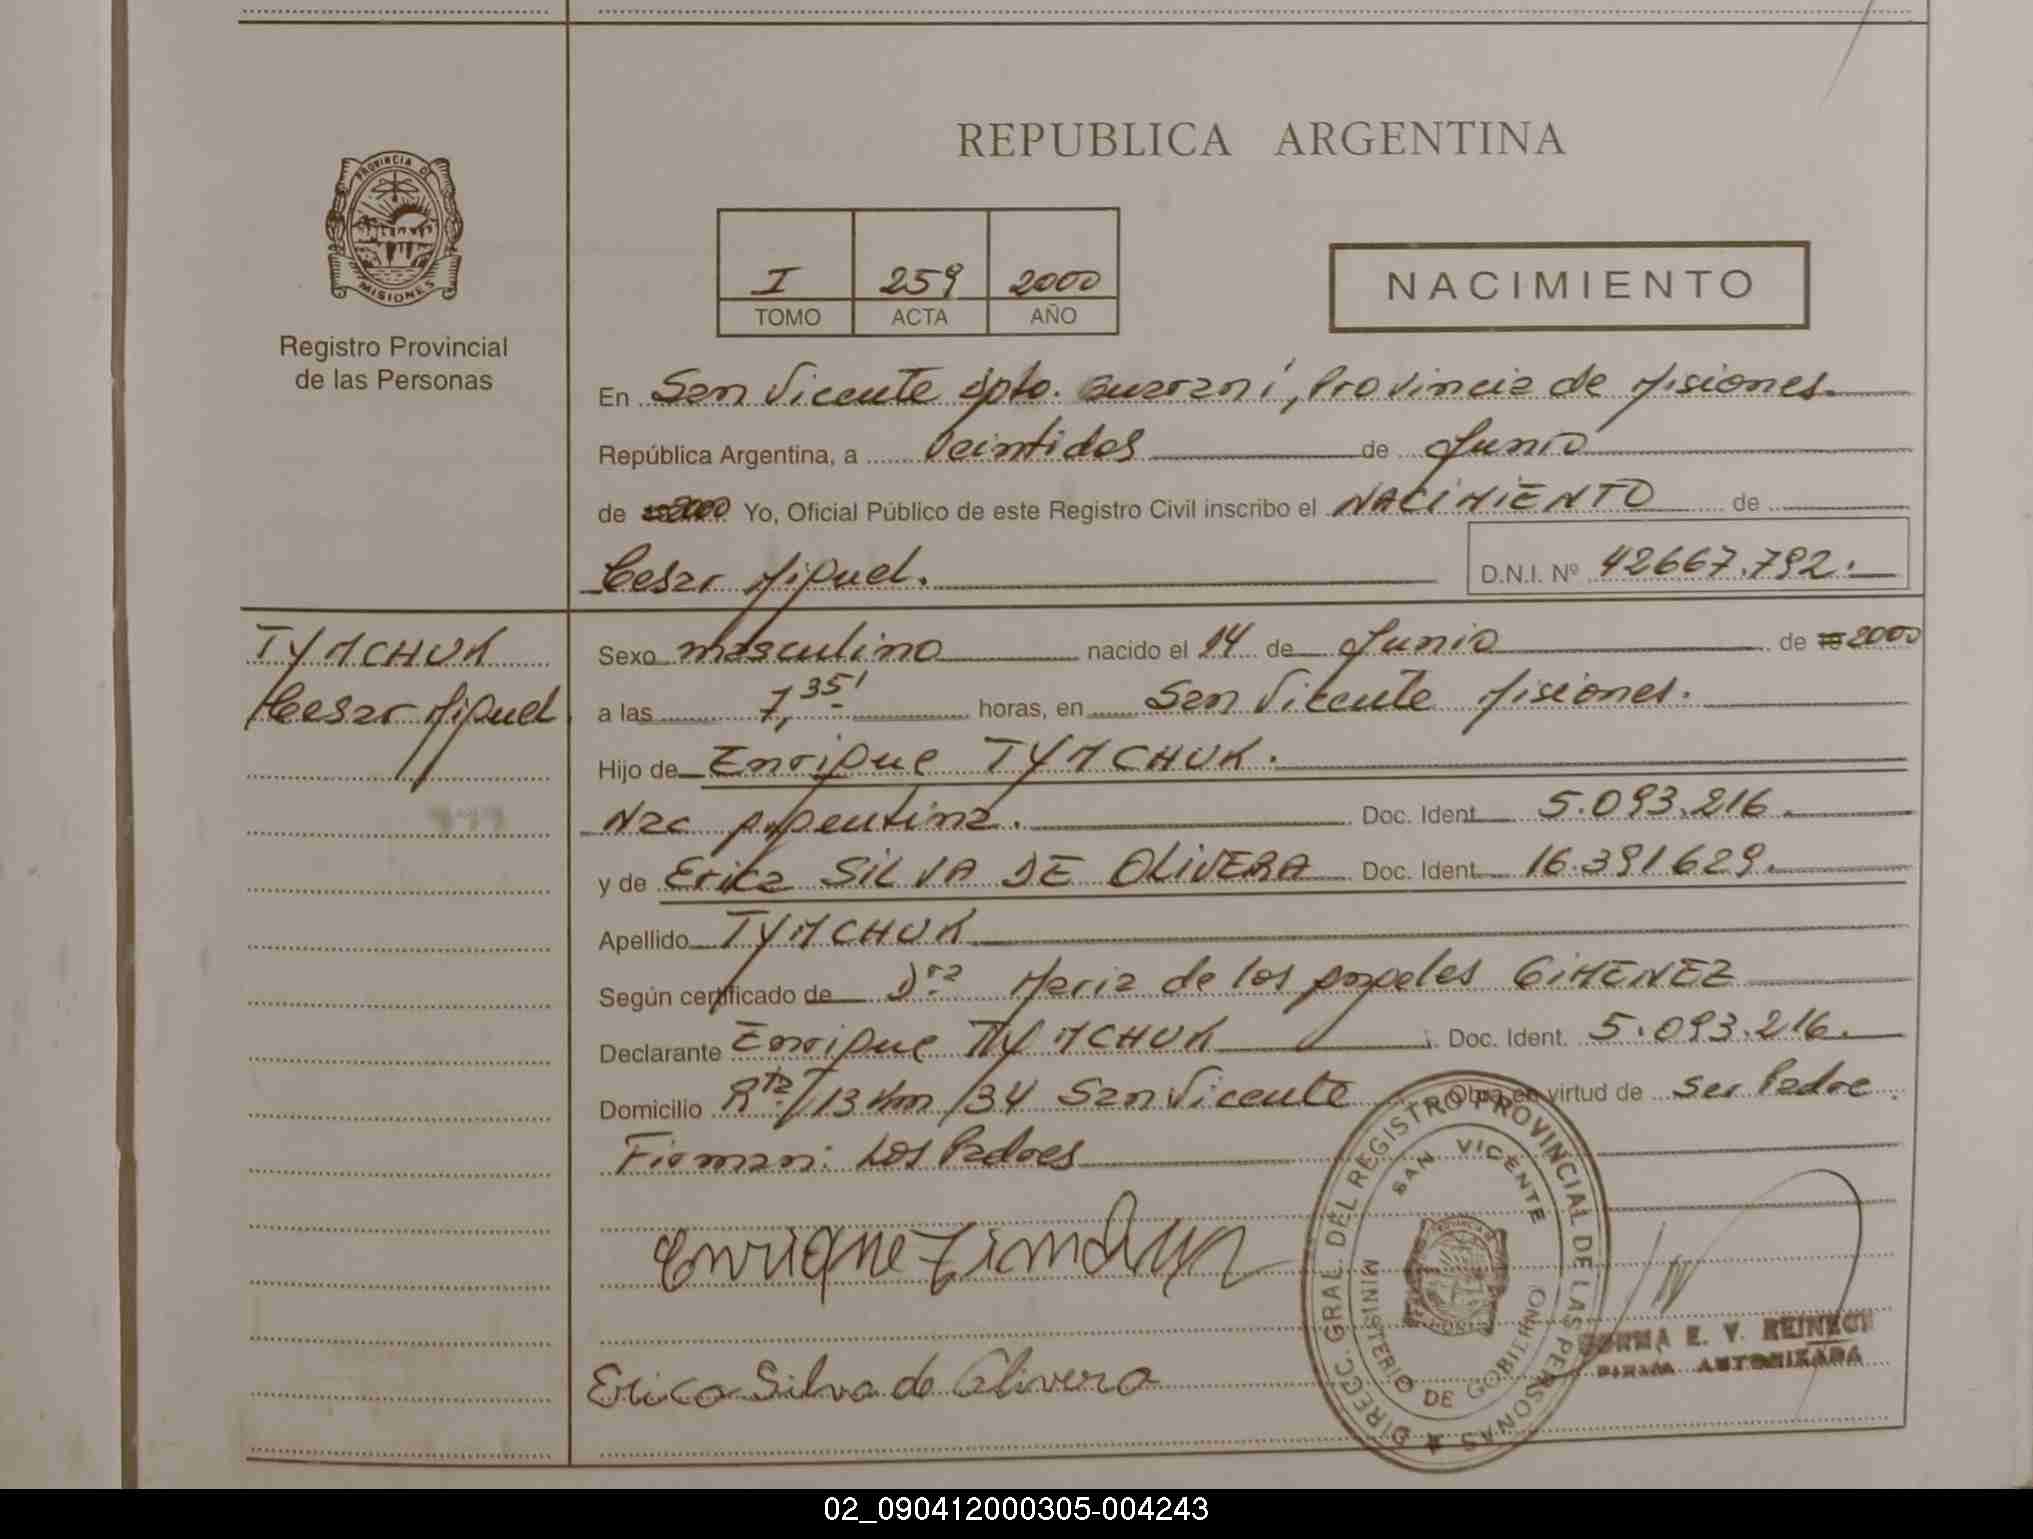 REPUBLICA ARGENTINA
PROVINCIA DE
MISIONES
Registro Provincial
de las Personas
I 259 2000
TOMO ACTA AÑO
NACIMIENTO
En San Vicente dpto. Guarani, Provincia de Misiones.
República Argentina, a Veintidos de Junio
de 2000 Yo, Oficial Público de este Registro Civil inscribo el NACIMIENTO de
Cesar Miguel. D.N.I. Nº 42667.792.
TYMCHUK
Cesar Miguel
Sexo masculino nacido el 14 de Junio de 2000
a las 7,35' horas, en San Vicente Misiones.
Hijo de Enrique TYMCHUK.
Nac Argentina. Doc. Ident. 5.093.216.
y de Erica SILVA DE OLIVERA Doc. Ident. 16.391.629.
Apellido TYMCHUK
Según certificado de Dra Maria de los Angeles GIMENEZ
Declarante Enrique TYMCHUK Doc. Ident. 5.093.216.
Domicilio Rta/13 Km/34 San Vicente Obra en virtud de ser Padre.
Firman: Los Padres
Enrique
Erica Silva de Olivera
DIRECC. GRAL. DEL REGISTRO PROVINCIAL DE LAS PERSONAS
SAN VICENTE
MINISTERIO DE GOBIERNO
NORMA E. V. REINECK
FIRMA AUTORIZADA
02_090412000305-004243